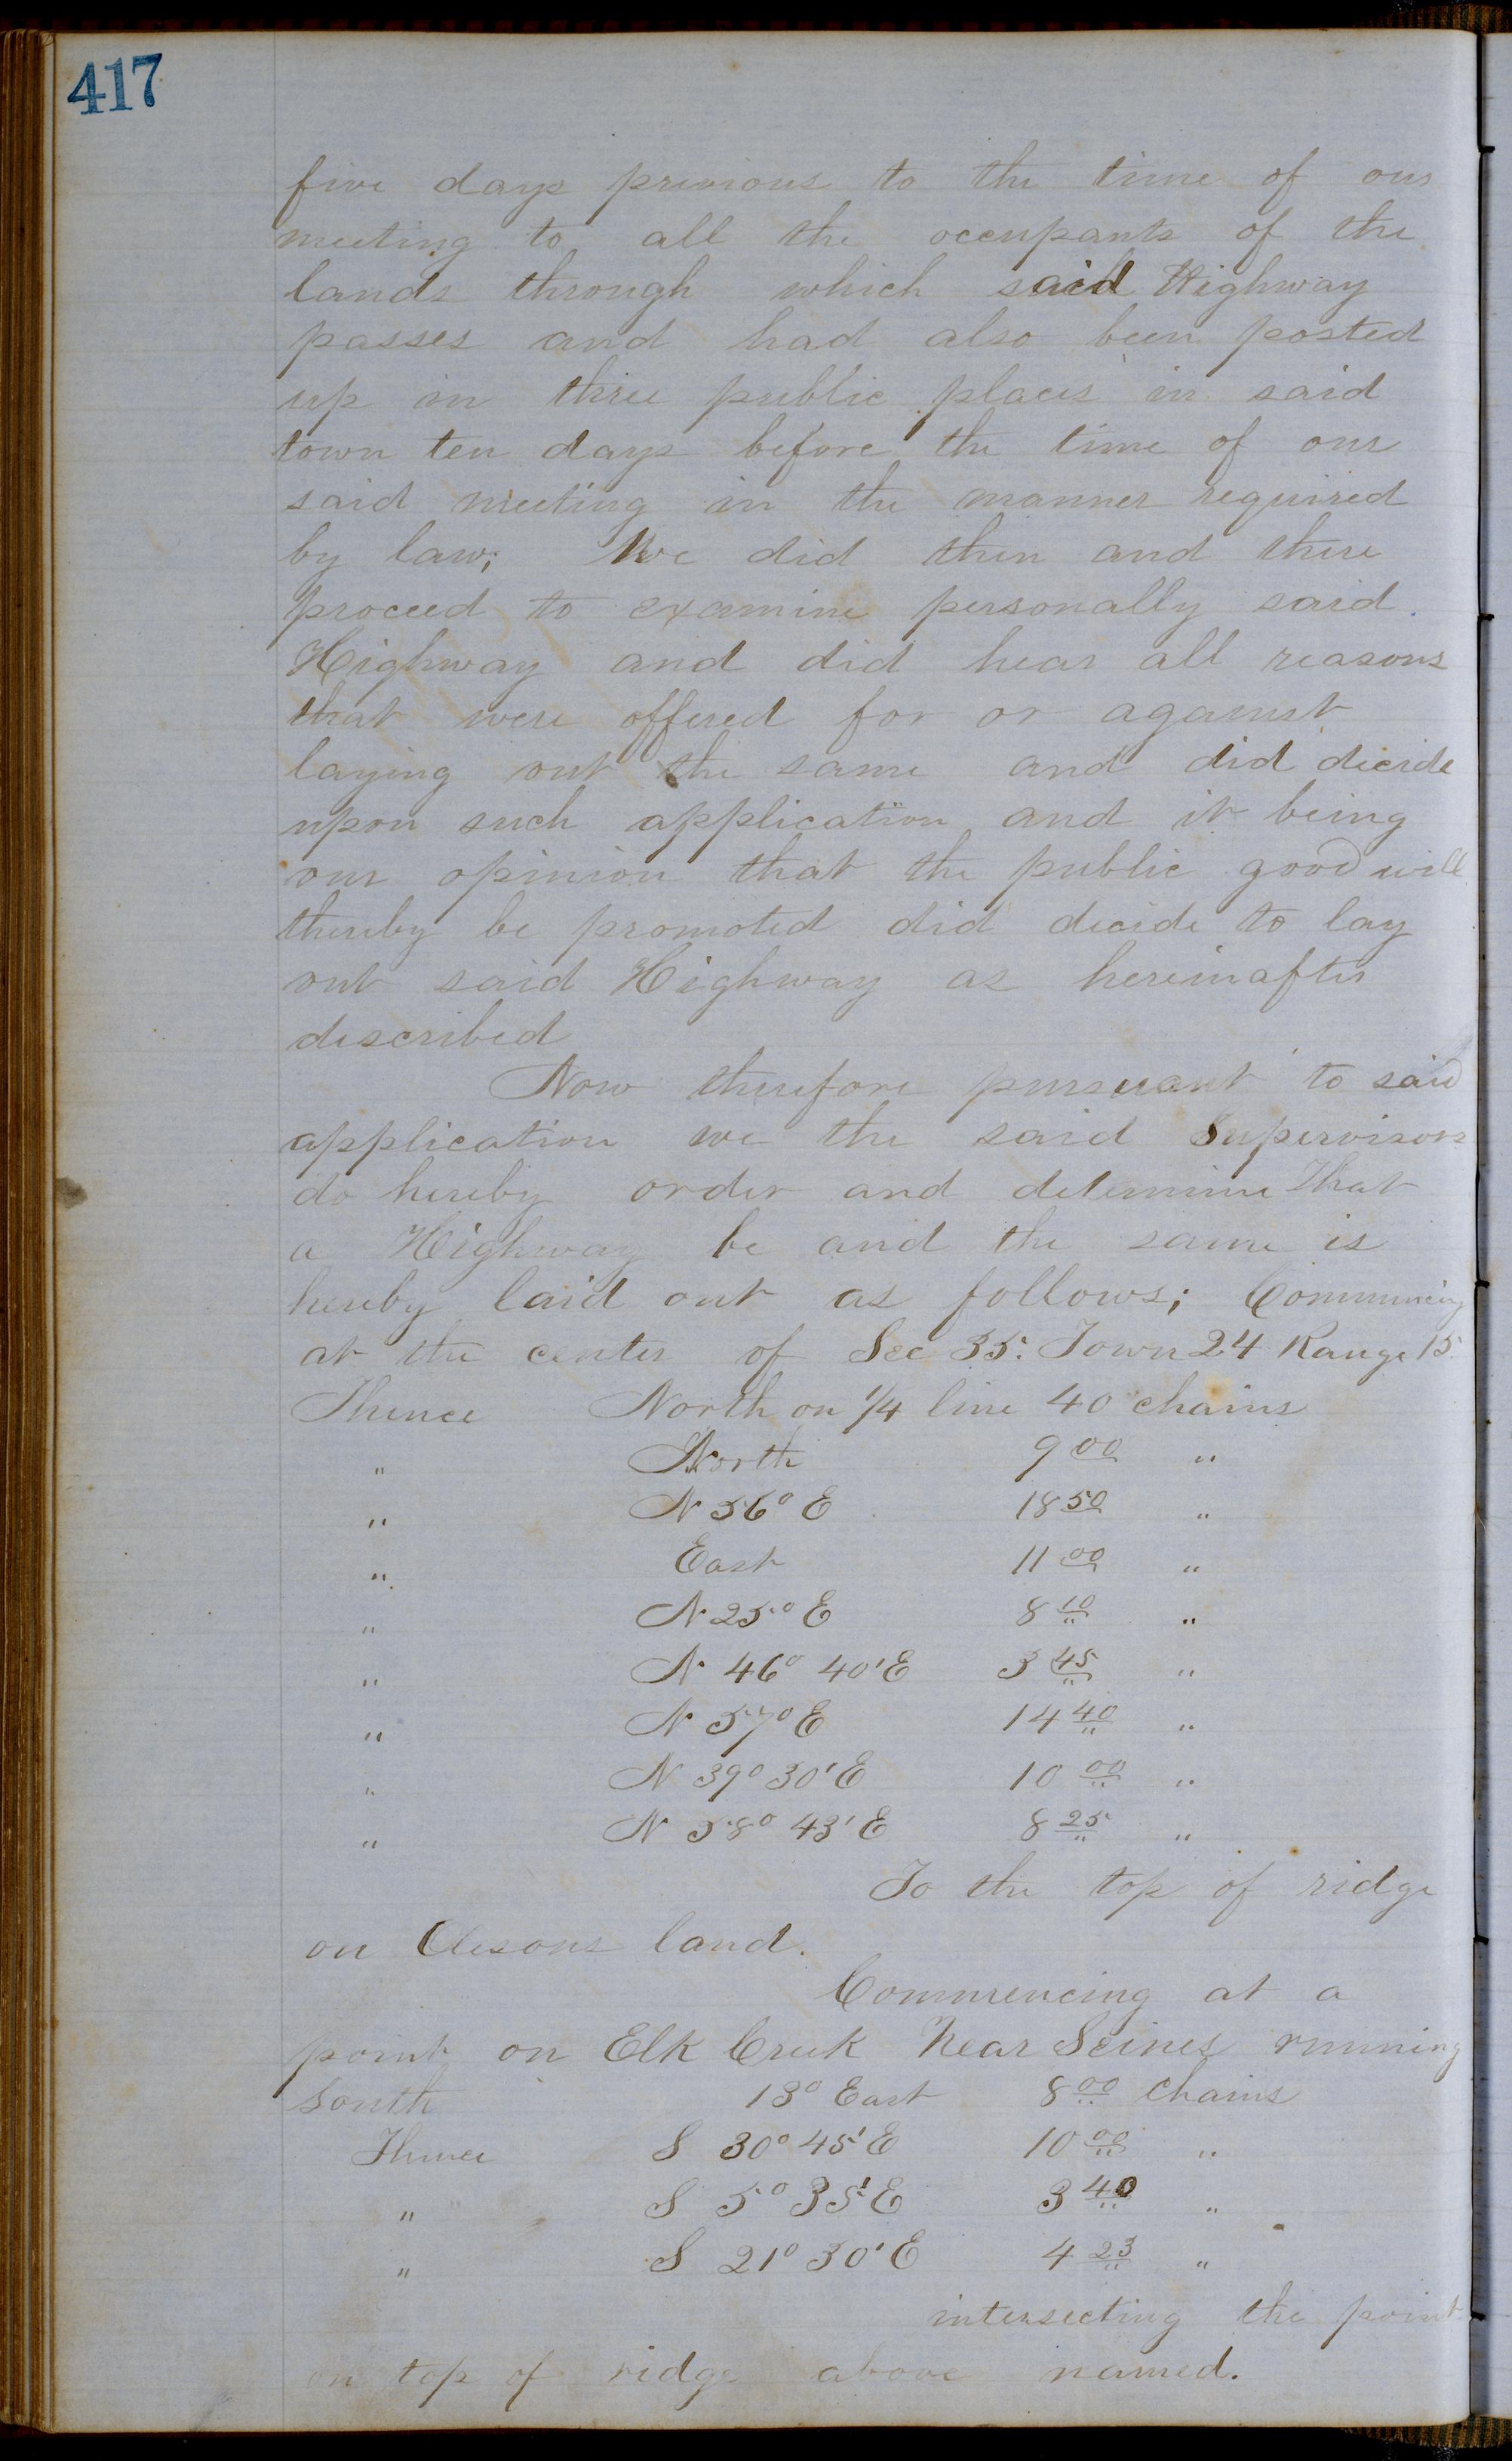 417
five days previous to the time of our
meeting to all the occupants of the
lands through which said Highway
passes and had also been posted
up in three public places in said
town ten days before the time of our
said meeting in the manner required
by law; We did then and there
proceed to examine personally said
Highway and did hear all reasons
that were offered for or against
laying out the same and did decide
upon such application and it being
our opinion that the public good will
thereby be promoted did decide to lay
out said Highway as hereinafter
described
Now therefore pursuant to said
application we the said Supervisors
do hereby order and determine That
a Highway be and the same is
hereby laid out as follows; Commencing
at the center of Sec 35. Town 24 Range 15.
Thence North on 1/4 line 40 chains
" North 9 00 "
" N 56° E 18 50 "
" East 11 00 "
" N 25° E 8 10 "
" N 46° 40' E 3 45 "
" N 57° E 14 40 "
" N 39° 30' E 10 00 "
" N 58° 43' E 8 25 "
To the top of ridge
on Olesons land.
Commencing at a
point on Elk Creek Near Seines running
South 13° East 8 00 Chains
Thence S 30° 45' E 10 00 "
" S 5° 35' E 3 40 "
" S 21° 30' E 4 23 "
intersecting the point
on top of ridge above named.